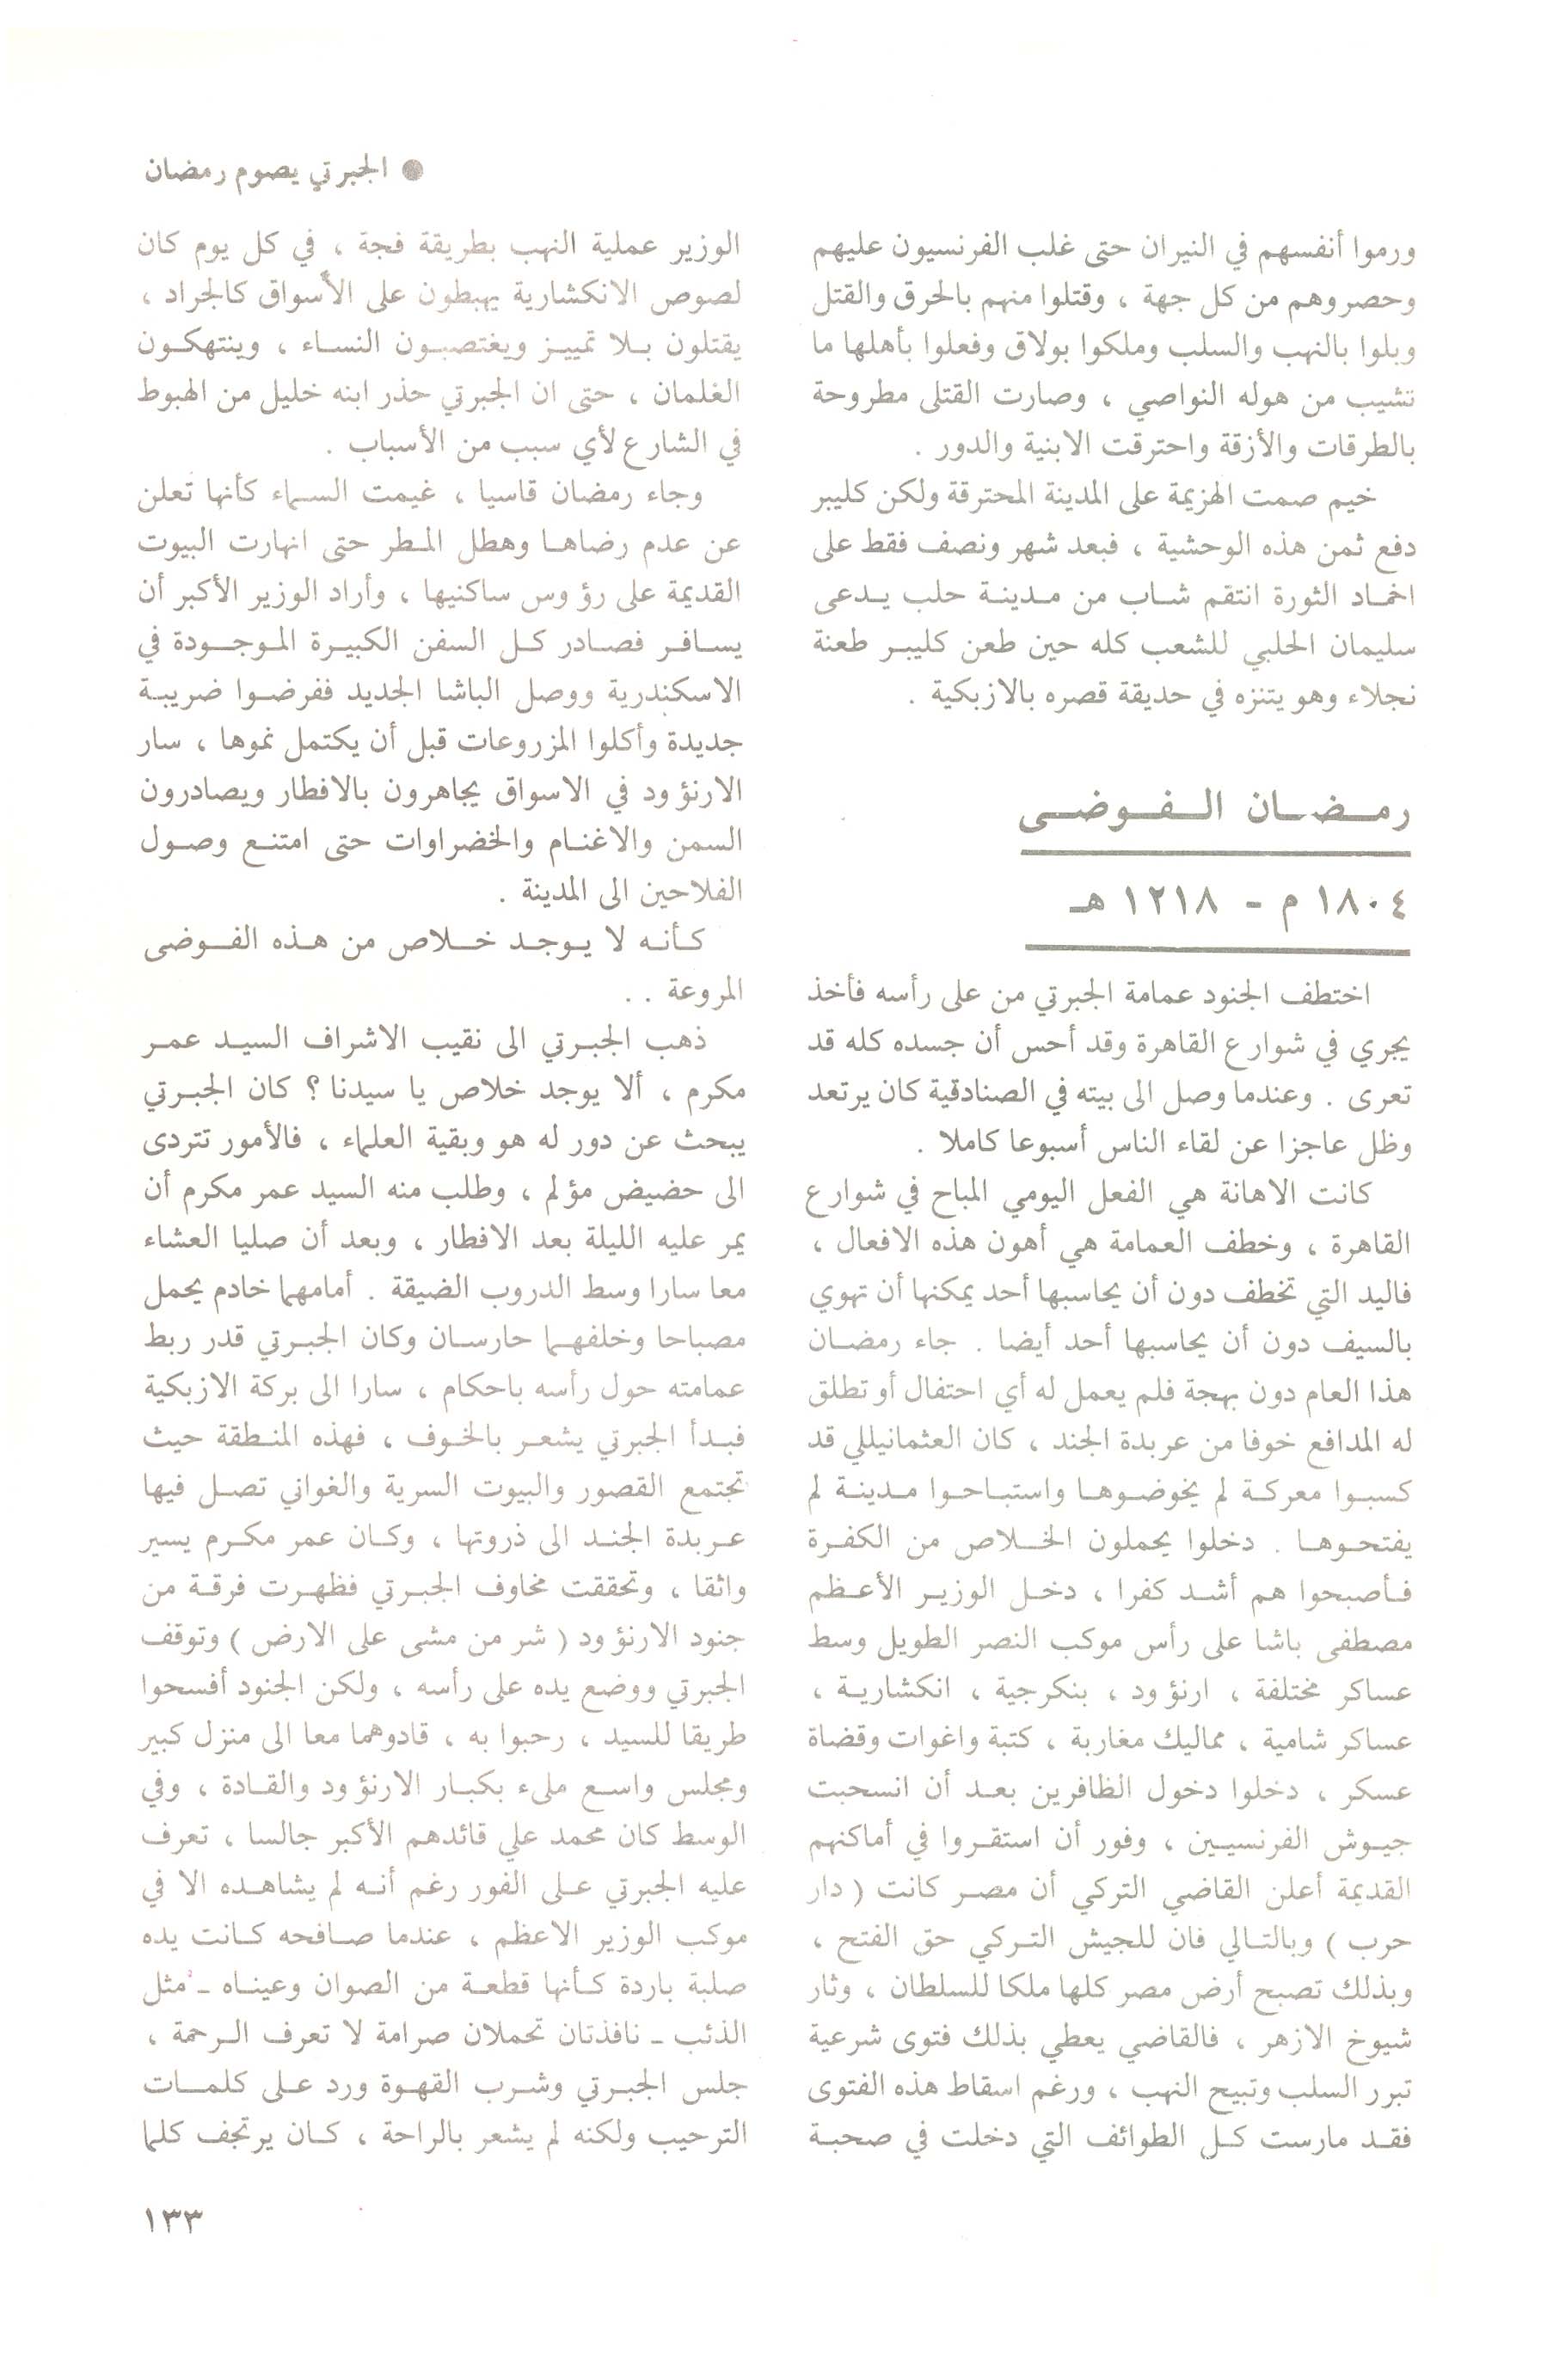 ● الجبرتي يصوم رمضان
ورموا أنفسهم في النيران حتى غلب الفرنسيون عليهم
وحصروهم من كل جهة ، وقتلوا منهم بالحرق والقتل
وبلوا بالنهب والسلب وملكوا بولاق وفعلوا بأهلها ما
تشيب من هوله النواصي ، وصارت القتلى مطروحة
بالطرقات والأزقة واحترقت الابنية والدور .
خيم صمت الهزيمة على المدينة المحترقة ولكن كليبر
دفع ثمن هذه الوحشية ، فبعد شهر ونصف فقط على
اخماد الثورة انتقم شاب من مدينة حلب يدعى
سليمان الحلبي للشعب كله حين طعن كليبر طعنة
نجلاء وهو يتنزه في حديقة قصره بالازبكية .
رمضان الفوضى
١٨٠٤ م - ١٢١٨ هـ
اختطف الجنود عمامة الجبرتي من على رأسه فأخذ
يجري في شوارع القاهرة وقد أحس أن جسده كله قد
تعرى . وعندما وصل الى بيته في الصنادقية كان يرتعد
وظل عاجزا عن لقاء الناس أسبوعا كاملا .
كانت الاهانة هي الفعل اليومي المباح في شوارع
القاهرة ، وخطف العمامة هي أهون هذه الافعال ،
فاليد التي تخطف دون أن يحاسبها أحد يمكنها أن تهوي
بالسيف دون أن يحاسبها أحد أيضا . جاء رمضان
هذا العام دون بهجة فلم يعمل له أي احتفال أو تطلق
له المدافع خوفا من عربدة الجند ، كان العثمانيللي قد
كسبوا معركة لم يخوضوها واستباحوا مدينة لم
يفتحوها . دخلوا يحملون الخلاص من الكفرة
فأصبحوا هم أشد كفرا ، دخل الوزير الأعظم
مصطفى باشا على رأس موكب النصر الطويل وسط
عساكر مختلفة ، ارنؤود ، بنكرجية ، انكشارية ،
عساكر شامية ، مماليك مغاربة ، كتبة واغوات وقضاة
عسكر ، دخلوا دخول الظافرين بعد أن انسحبت
جيوش الفرنسيين ، وفور أن استقروا في أماكنهم
القديمة أعلن القاضي التركي أن مصر كانت ( دار
حرب ) وبالتالي فان للجيش التركي حق الفتح ،
وبذلك تصبح أرض مصر كلها ملكا للسلطان ، وثار
شيوخ الازهر ، فالقاضي يعطي بذلك فتوى شرعية
تبرر السلب وتبيح النهب ، ورغم اسقاط هذه الفتوى
فقد مارست كل الطوائف التي دخلت في صحبة
الوزير عملية النهب بطريقة فجة ، في كل يوم كان
لصوص الانكشارية يهبطون على الأسواق كالجراد ،
يقتلون بلا تمييز ويغتصبون النساء ، وينتهكون
الغلمان ، حتى ان الجبرتي حذر ابنه خليل من الهبوط
في الشارع لأي سبب من الأسباب .
وجاء رمضان قاسيا ، غيمت السماء كأنها تعلن
عن عدم رضاها وهطل المطر حتى انهارت البيوت
القديمة على رؤوس ساكنيها ، وأراد الوزير الأكبر أن
يسافر فصادر كل السفن الكبيرة الموجودة في
الاسكندرية ووصل الباشا الجديد ففرضوا ضريبة
جديدة وأكلوا المزروعات قبل أن يكتمل نموها ، سار
الارنؤود في الاسواق يجاهرون بالافطار ويصادرون
السمن والاغنام والخضراوات حتى امتنع وصول
الفلاحين الى المدينة .
كأنه لا يوجد خلاص من هذه الفوضى
المروعة . .
ذهب الجبرتي الى نقيب الاشراف السيد عمر
مكرم ، ألا يوجد خلاص يا سيدنا ؟ كان الجبرتي
يبحث عن دور له هو وبقية العلماء ، فالأمور تتردى
الى حضيض مؤلم ، وطلب منه السيد عمر مكرم أن
يمر عليه الليلة بعد الافطار ، وبعد أن صليا العشاء
معا سارا وسط الدروب الضيقة . أمامهما خادم يحمل
مصباحا وخلفهما حارسان وكان الجبرتي قدر ربط
عمامته حول رأسه باحكام ، سارا الى بركة الازبكية
فبدأ الجبرتي يشعر بالخوف ، فهذه المنطقة حيث
تجتمع القصور والبيوت السرية والغواني تصل فيها
عربدة الجند الى ذروتها ، وكان عمر مكرم يسير
واثقا ، وتحققت مخاوف الجبرتي فظهرت فرقة من
جنود الارنؤود ( شر من مشى على الارض ) وتوقف
الجبرتي ووضع يده على رأسه ، ولكن الجنود أفسحوا
طريقا للسيد ، رحبوا به ، قادوهما معا الى منزل كبير
ومجلس واسع ملىء بكبار الارنؤود والقادة ، وفي
الوسط كان محمد علي قائدهم الأكبر جالسا ، تعرف
عليه الجبرتي على الفور رغم أنه لم يشاهده الا في
موكب الوزير الاعظم ، عندما صافحه كانت يده
صلبة باردة كأنها قطعة من الصوان وعيناه - مثل
الذئب - نافذتان تحملان صرامة لا تعرف الرحمة ،
جلس الجبرتي وشرب القهوة ورد على كلمات
الترحيب ولكنه لم يشعر بالراحة ، كان يرتجف كلما
١٣٣